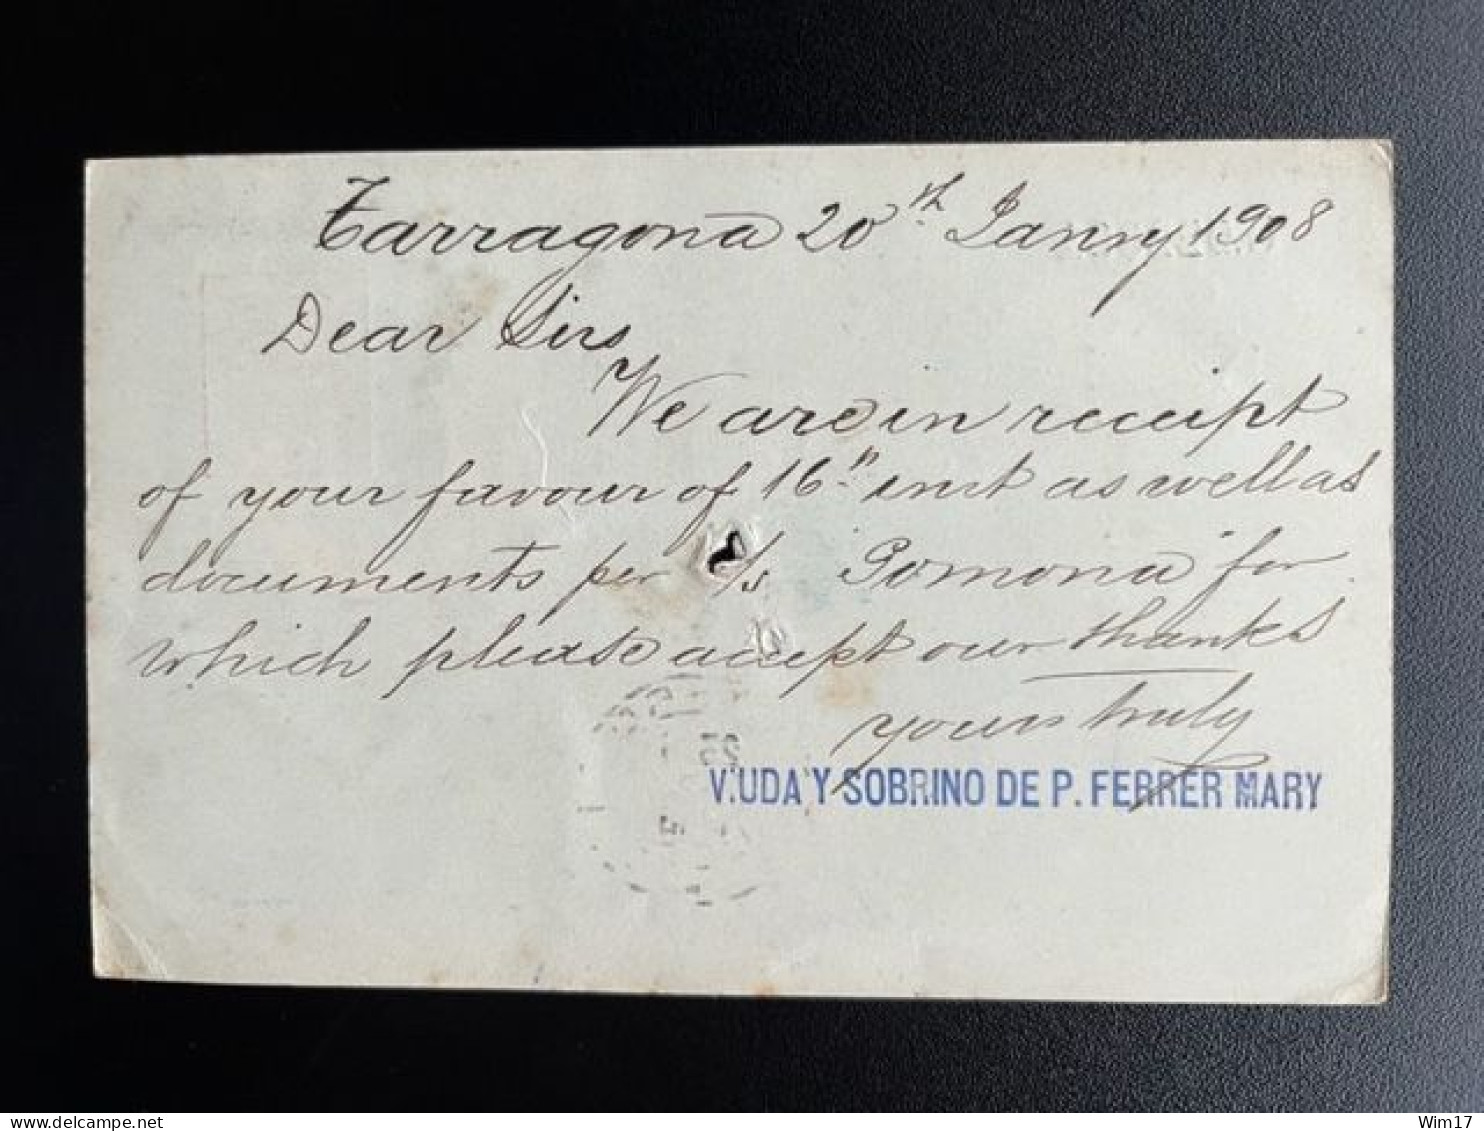 Tarragona 20th Janry 1908
Dear Sirs
We are in receipt
of your favour of 16th inst as well as
documents per s/s "Pomona" for
which please accept our thanks
yours truly
V.UDA Y SOBRINO DE P. FERRER MARY
Wim17